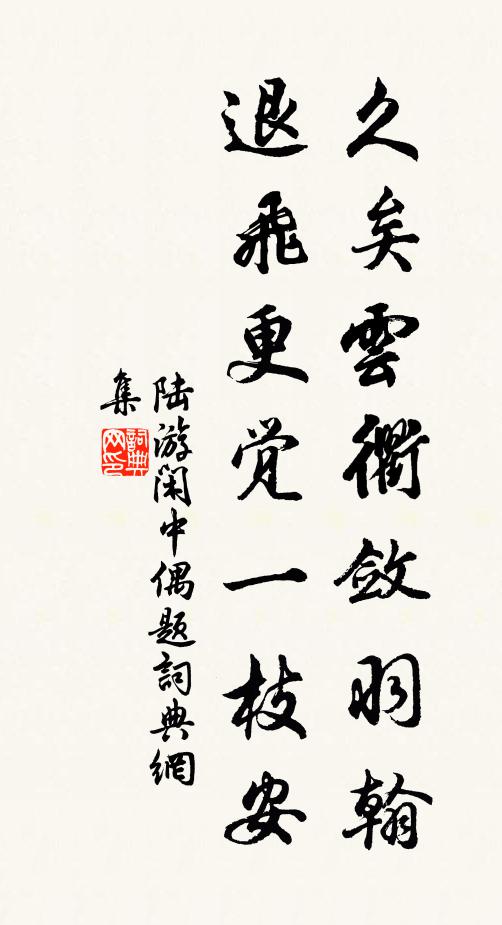 久矣雲衢斂羽翰
退飛更覺一枝安
陆游閑中偶题詞典網
集
詞典网印